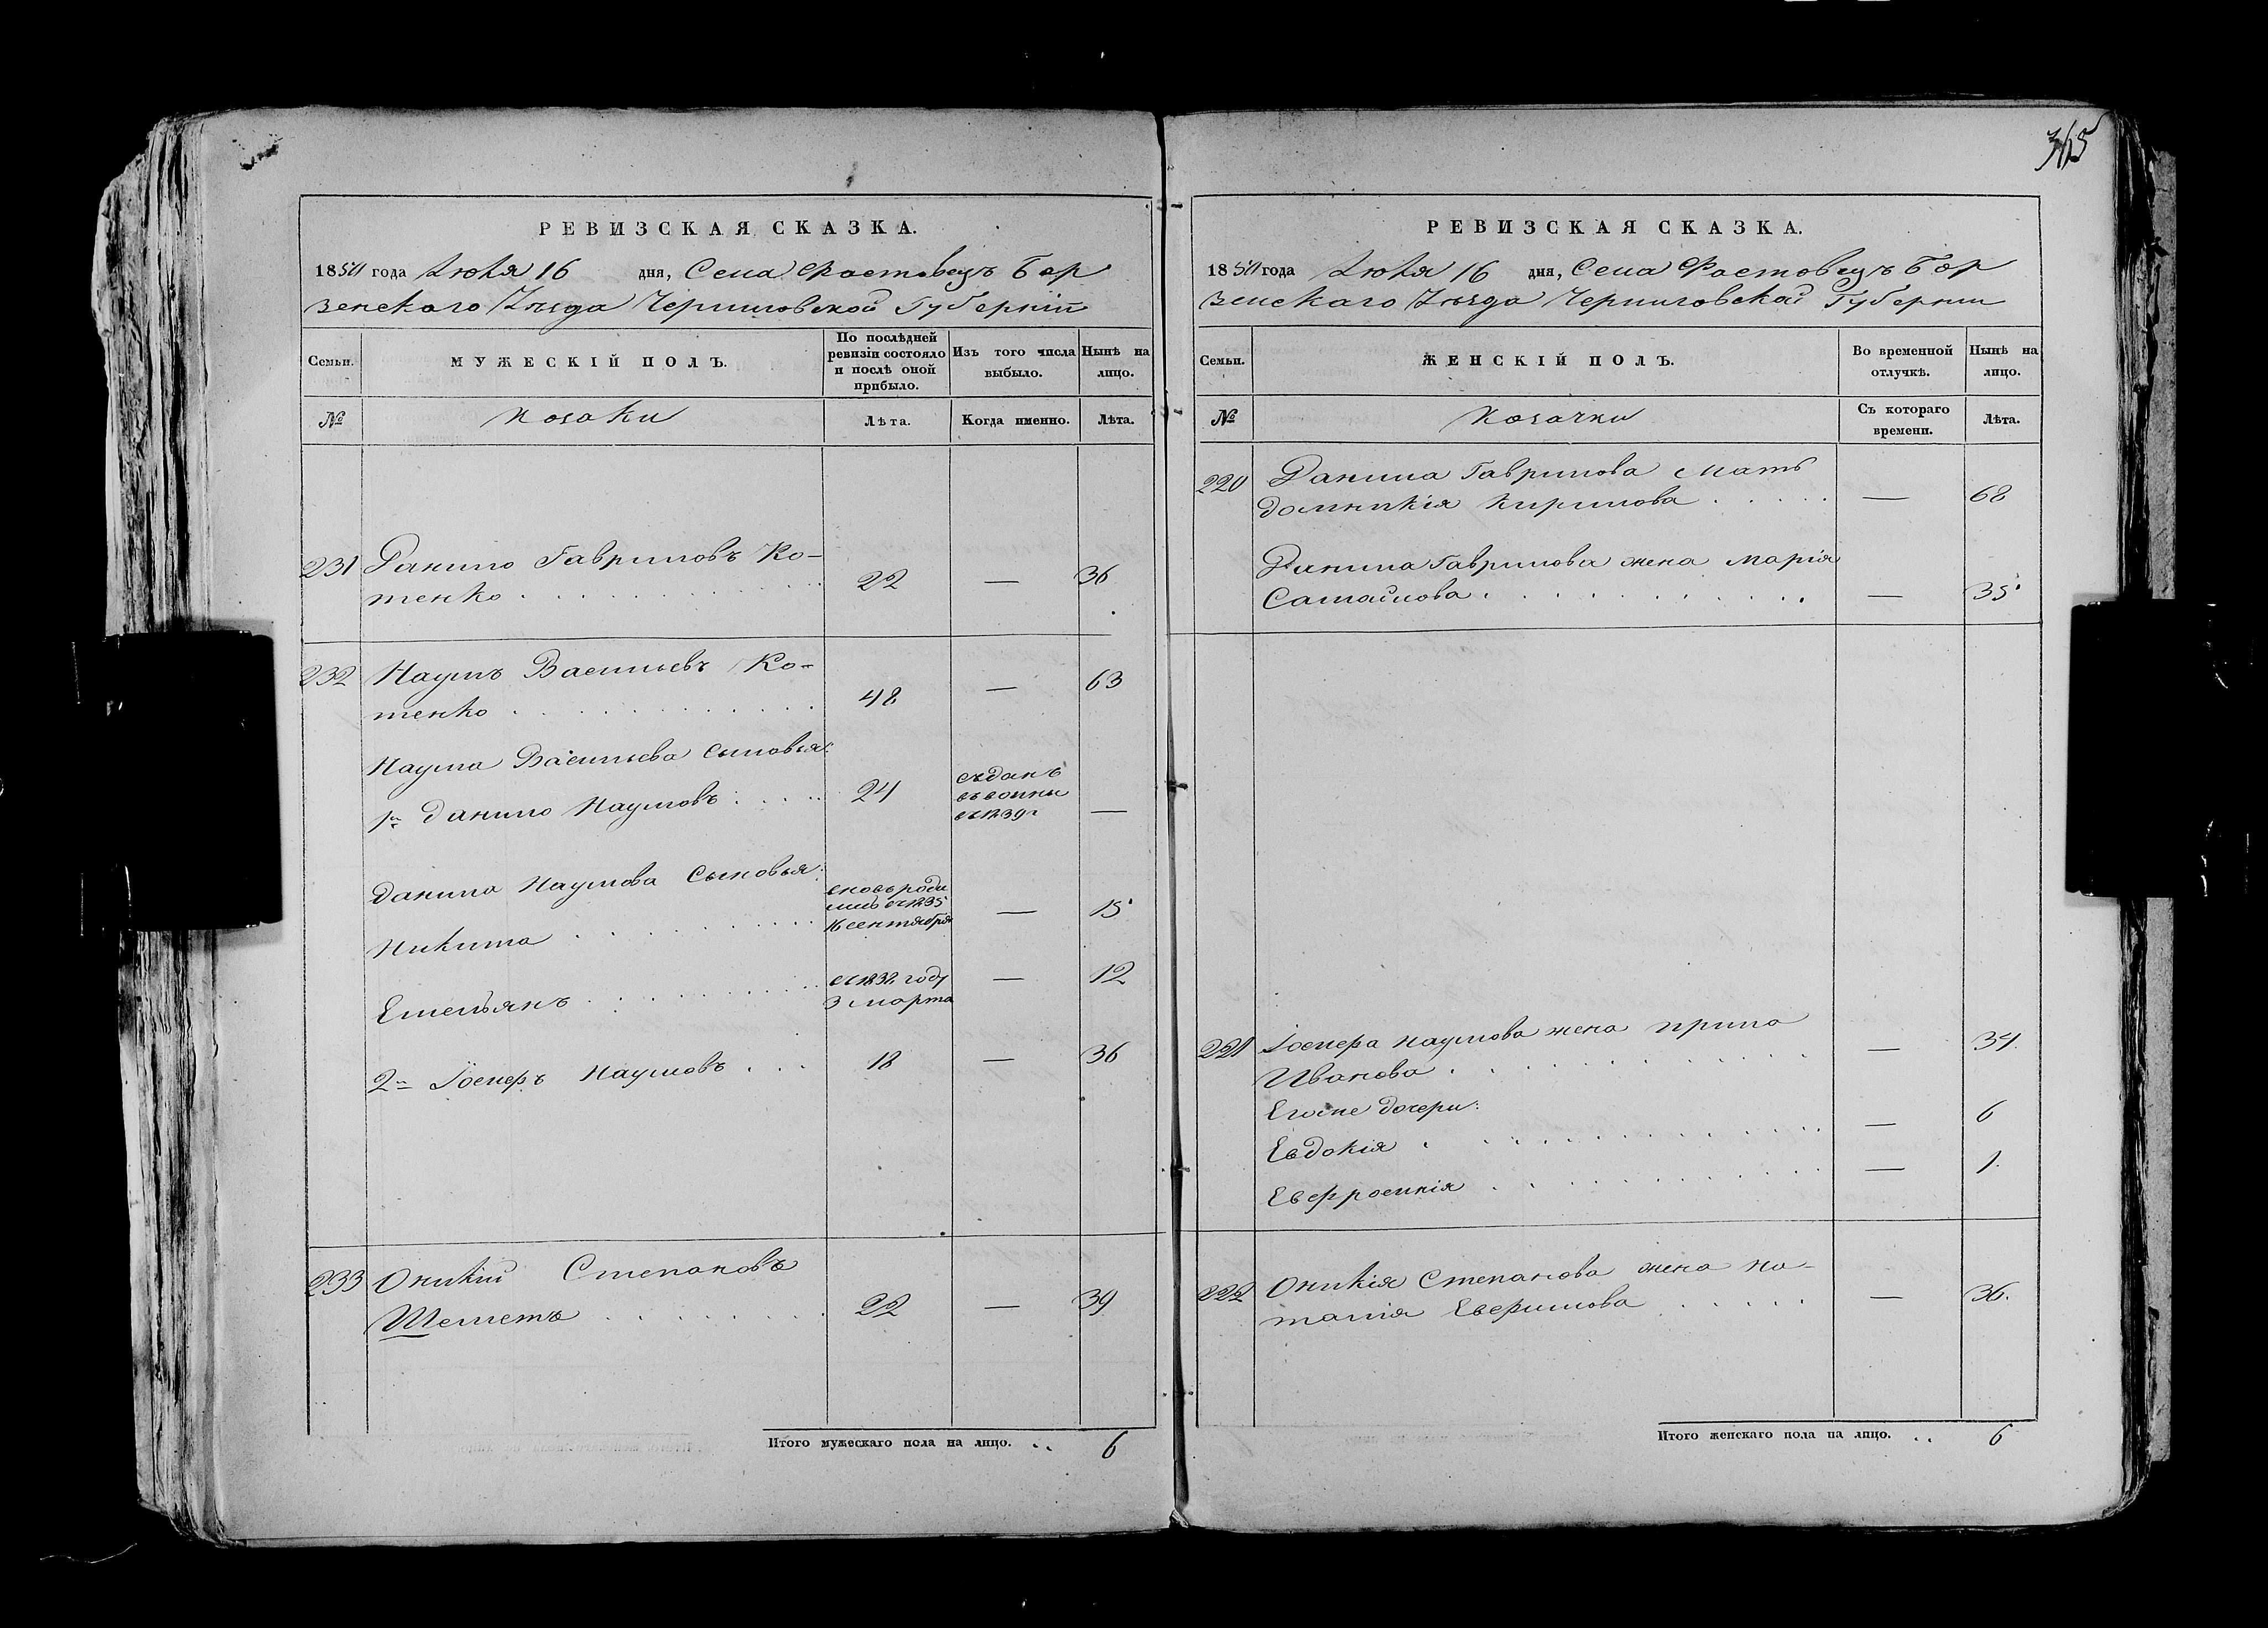 365
РЕВИЗСКАЯ СКАЗКА.
1850 года Июля 16 дня, Села Фастовецъ Бор
зенского Уѣзда Черниговской Губерніи
Семьи. МУЖЕСКІЙ ПОЛЪ. По послѣдней ревизіи состояло и послѣ оной прибыло. Изъ того числа выбыло. Нынѣ на лицо.
№ Козаки Лѣта. Когда именно. Лѣта.
231 Данило Гавриловъ Ко-
тенко 22 — 36
232 Наумъ Васильевъ Ко-
тенко 48 — 63
Наума Васильева сыновья:
1й Данило Наумовъ 24 —
въ 1839г
Данила Наумова Сыновья:
Никита — 15
16 сентября
Емельянъ году — 12
3 марта
2й Іосифъ Наумовъ 18 — 36
233 Оникий Степановъ
Шеметъ 22 — 39
Итого мужескаго пола на лицо. 6
РЕВИЗСКАЯ СКАЗКА.
1850 года Июля 16 дня, Села Фастовецъ Бор
зенскаго Уѣзда Черниговской Губернии
Семьи. ЖЕНСКІЙ ПОЛЪ. Во временной отлучкѣ. Нынѣ на лицо.
№ Козачки Съ котораго времени. Лѣта.
220 Данила Гаврилова Мать
Домникія Кирилова — 68
Данила Гаврилова жена Марія
Самойлова — 35
221 Іосифа Наумова жена Ирина
Иванова — 34
Егоже дочери:
Евдокія — 6
Евфросинія — 1
222 Оникія Степанова жена На-
талія Евфимова — 36.
Итого женскаго пола на лицо. 6